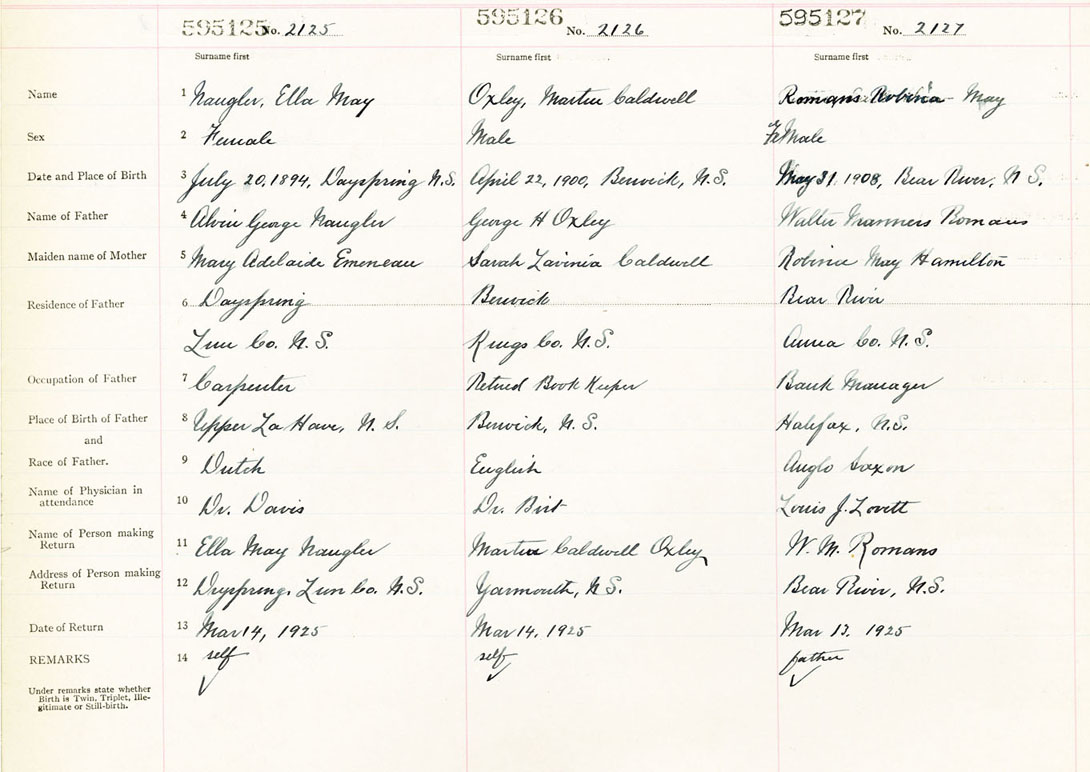 595125 No. 2125 595126 No. 2126 595127 No. 2127
Surname first Surname first Surname first
Name 1 Naugler, Ella May Oxley, Martin Caldwell Romans Robina May
Sex 2 Female Male FeMale
Date and Place of Birth 3 July 20, 1894, Dayspring N.S. April 22, 1900, Berwick, N.S. May 31 1908, Bear River, N S.
Name of Father 4 Alvin George Naugler George H Oxley Walter Manners Romans
Maiden name of Mother 5 Mary Adelaide Emeneau Sarah Lavinia Caldwell Robina May Hamilton
Residence of Father 6 Dayspring Berwick Bear River
Lun Co. N.S. Kings Co. N.S. Anna Co. N.S.
Occupation of Father 7 Carpenter Retired Book Keeper Bank Manager
Place of Birth of Father 8 Upper La Have, N. S. Berwick, N.S. Halifax, N.S.
and
Race of Father. 9 Dutch English Anglo Saxon
Name of Physician in
attendance 10 Dr. Davis Dr. Louis J. Lovitt
Name of Person making
Return 11 Ella May Naugler Martin Caldwell Oxley W. M. Romans
Address of Person making
Return 12 Dayspring. Lun Co. N.S. Yarmouth, N S. Bear River, N.S.
Date of Return 13 Mar 14, 1925 Mar 14. 1925 Mar 13. 1925
REMARKS 14 self self father
Under remarks state whether
Birth is Twin, Triplet, Ille-
gitimate or Still-birth.